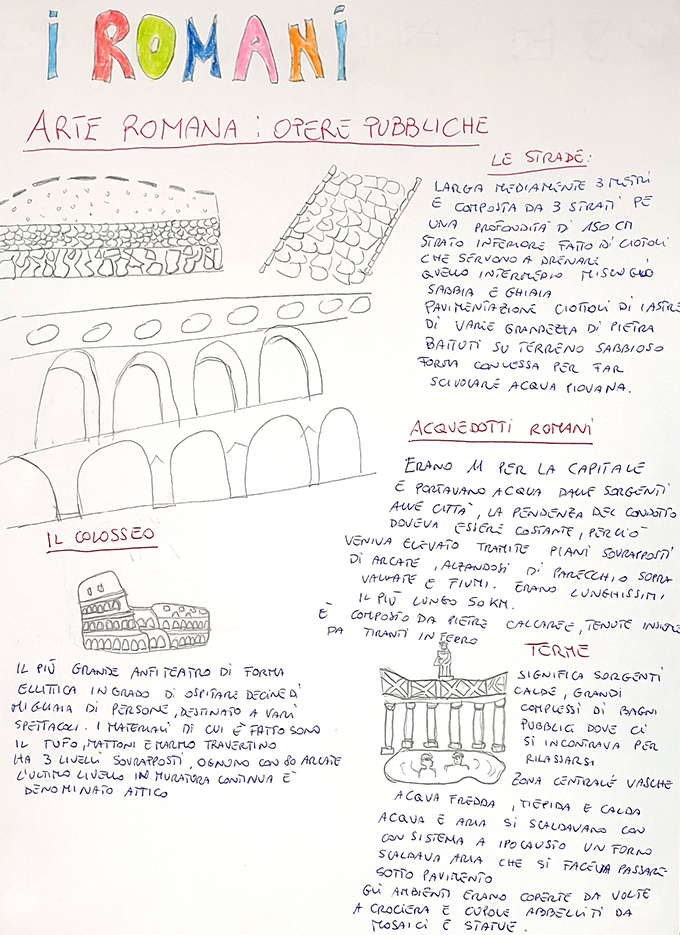 I ROMANI
ARTE ROMANA: OPERE PUBBLICHE
LE STRADE:
LARGA MEDIAMENTE 3 METRI
E COMPOSTA DA 3 STRATI PE
UNA PROFONDITÀ DI 150 CM
STRATO INFERIORE FATTO DI CIOTOLI
CHE SERVONO A DRENARE
QUELLO INTERMEDIO MISCUGLIO
SABBIA E GHIAIA
PAVIMENTAZIONE CIOTTOLI DI LASTRE
DI VARIE GRANDEZZA DI PIETRA
BATTUTI SU TERRENO SABBIOSO
FORMA CONVESSA PER FAR
SCIVOLARE ACQUA PIOVANA.
ACQUEDOTTI ROMANI
ERANO 11 PER LA CAPITALE
E PORTAVANO ACQUA DALLE SORGENTI
ALLE CITTÀ, LA PENDENZA DEL CONDOTTO
DOVEVA ESSERE COSTANTE, PERCIÒ
VENIVA ELEVATO TRAMITE PIANI SOVRAPPOSTI
DI ARCATE, ALZANDOSI DI PARECCHIO SOPRA
VALLATE E FIUMI. ERANO LUNGHISSIMI
IL PIÙ LUNGO 50 KM.
È COMPOSTO DA PIETRE CALCAREE, TENUTE INSIEME
DA TIRANTI IN FERRO
IL COLOSSEO
IL PIÙ GRANDE ANFITEATRO DI FORMA
ELLITTICA IN GRADO DI OSPITARE DECINE DI
MIGLIAIA DI PERSONE, DESTINATO A VARI
SPETTACOLI. I MATERIALI DI CUI È FATTO SONO
IL TUFO, MATTONI E MARMO TRAVERTINO
HA 3 LIVELLI SOVRAPPOSTI, OGNUNO CON 80 ARCATE
L'ULTIMO LIVELLO IN MURATURA CONTINUA È
DENOMINATO ATTICO
TERME
SIGNIFICA SORGENTI
CALDE, GRANDI
COMPLESSI DI BAGNI
PUBBLICI DOVE CI
SI INCONTRAVA PER
RILASSARSI
ZONA CENTRALE VASCHE
ACQUA FREDDA, TIEPIDA E CALDA
ACQUA E ARIA SI SCALDAVANO CON
CON SISTEMA A IPOCAUSTO UN FORNO
SCALDAVA ARIA CHE SI FACEVA PASSARE
SOTTO PAVIMENTO
GLI AMBIENTI ERANO COPERTE DA VOLTE
A CROCIERA E CUPOLE ABBELLITI DA
MOSAICI E STATUE.